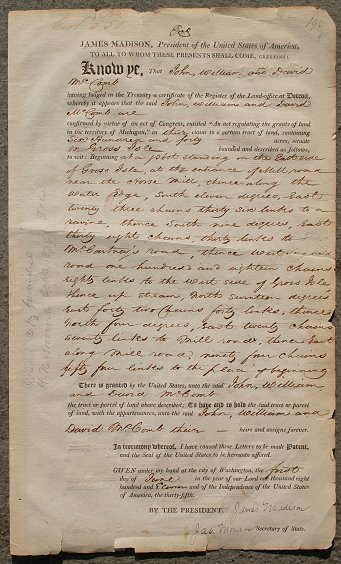 JAMES MADISON, President of the United States of America,
TO ALL TO WHOM THESE PRESENTS SHALL COME, GREETING:
Know ye, That John, William and David
McComb
having lodged in the Treasury a certificate of the Register of the Land-office at Detroit,
whereby it appears that the said John, William and David
McComb are
confirmed by virtue of an act of Congress, entitled "An act regulating the grants of land
in the territory of Michigan," in their claim to a certain tract of land, containing
Six Hundred and forty acres, situate
on Gross Isle bounded and described as follows,
to wit: Beginning at a post standing on the East side
of Gross Isle, at the entrance of Mill road
near the Horse Mill, thence along the
Water Edge, South eleven degrees, East
twenty three chains thirty six links to a
ravine, thence South nine degrees, East
thirty eight chains, thirty links to
McCartney's road, thence West
road one hundred and eighteen chains
eighty links to the West side of Gross Isle
thence up stream, North seventeen degrees
East forty two chains forty links, thence
North four degrees, East twenty chains
seventy links to Mill road, thence East
along Mill road, ninety four chains
fifty four links to the place of beginning
There is granted by the United States, unto the said John, William
and David McComb
the tract or parcel of land above described; To have and to hold the said tract or parcel
of land, with the appurtenances, unto the said John, William and
David McComb their heirs and assigns forever.
In testimony whereof, I have caused these Letters to be made Patent,
and the Seal of the United States to be hereunto affixed.
GIVEN under my hand at the city of Washington, the first
day of June in the year of our Lord one thousand eight
hundred and Eleven and of the Independence of the United States
of America, the thirty-fifth.
BY THE PRESIDENT, James Madison
Jas. Monroe Secretary of State.